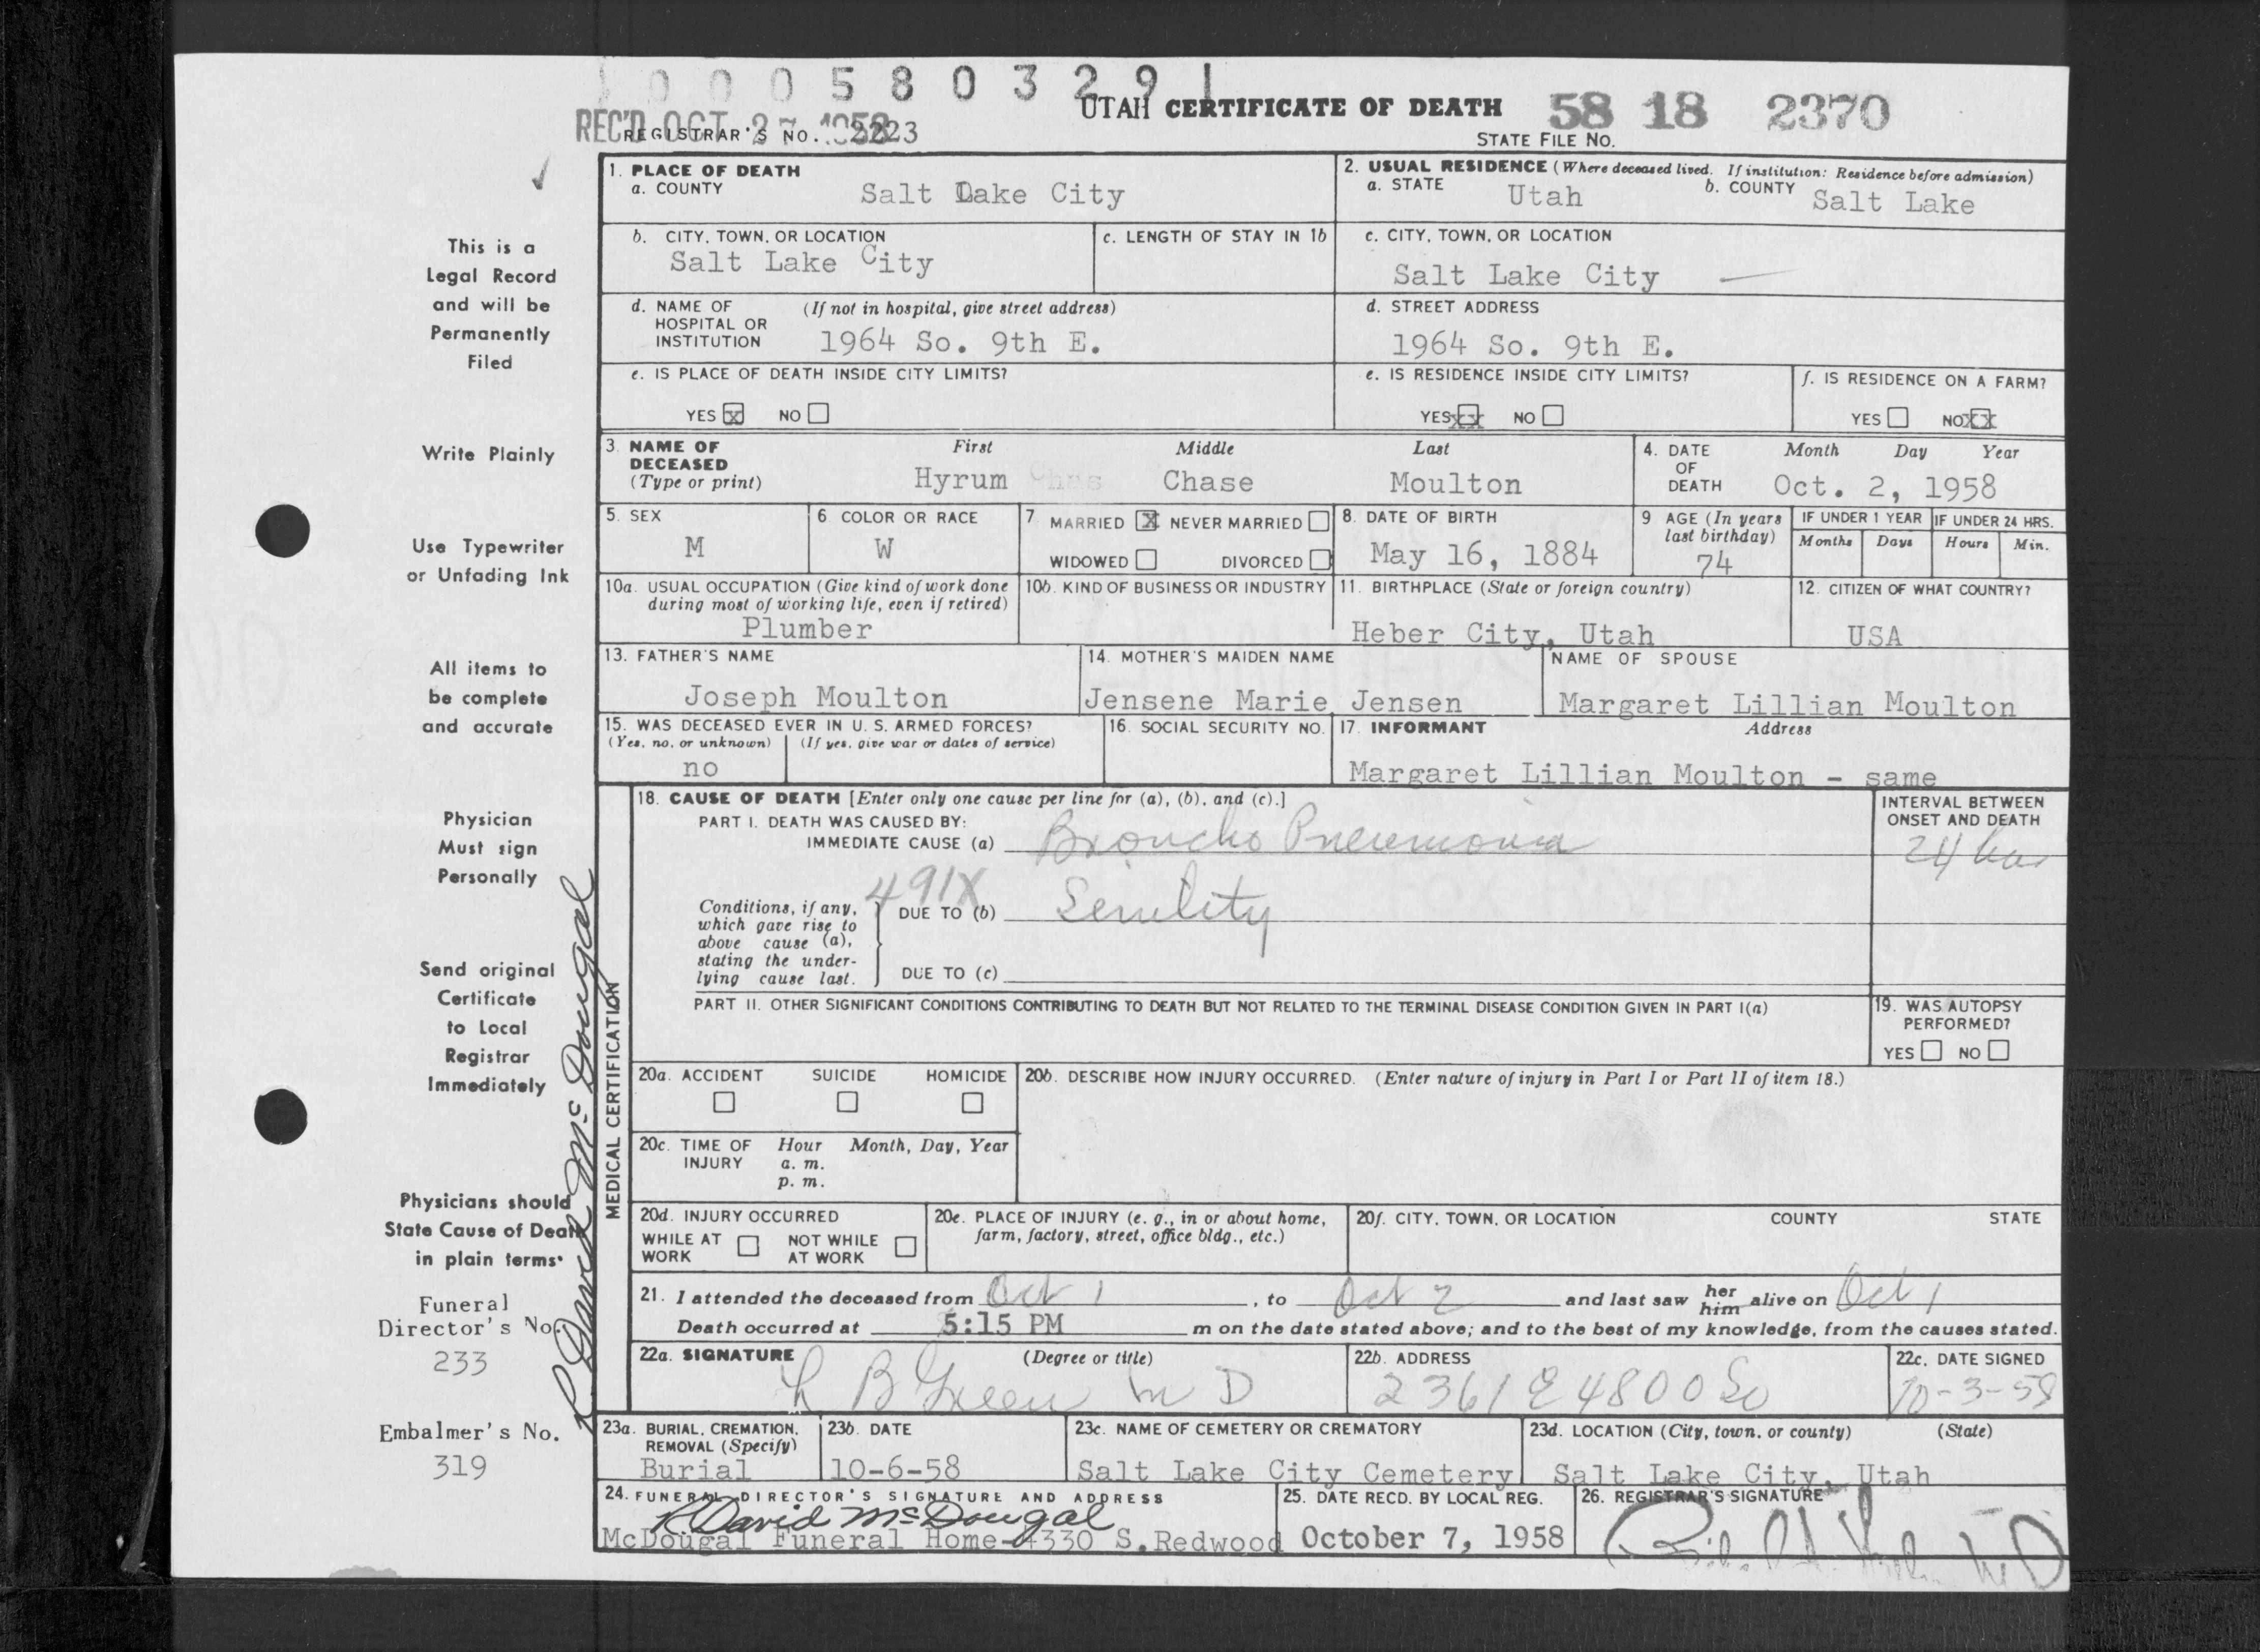 0 0 0 5 8 0 3 2 9 1
UTAH CERTIFICATE OF DEATH 58 18 2370
REC'D OCT 27 1958
REGISTRAR'S NO. 2223
STATE FILE NO.
1. PLACE OF DEATH
a. COUNTY Salt Lake City
2. USUAL RESIDENCE (Where deceased lived. If institution: Residence before admission)
a. STATE Utah b. COUNTY Salt Lake
b. CITY, TOWN, OR LOCATION
Salt Lake City
c. LENGTH OF STAY IN 1b
c. CITY, TOWN, OR LOCATION
Salt Lake City
d. NAME OF (If not in hospital, give street address)
HOSPITAL OR
INSTITUTION 1964 So. 9th E.
d. STREET ADDRESS
1964 So. 9th E.
e. IS PLACE OF DEATH INSIDE CITY LIMITS?
YES X NO
e. IS RESIDENCE INSIDE CITY LIMITS?
YES XX NO
f. IS RESIDENCE ON A FARM?
YES NO XX
3. NAME OF DECEASED (Type or print)
First Middle Last
Hyrum Chas Chase Moulton
4. DATE OF DEATH
Month Day Year
Oct. 2, 1958
5. SEX
M
6 COLOR OR RACE
W
7 MARRIED X NEVER MARRIED
WIDOWED DIVORCED
8. DATE OF BIRTH
May 16, 1884
9 AGE (In years last birthday)
74
IF UNDER 1 YEAR IF UNDER 24 HRS.
Months Days Hours Min.
10a. USUAL OCCUPATION (Give kind of work done during most of working life, even if retired)
Plumber
10b. KIND OF BUSINESS OR INDUSTRY
11. BIRTHPLACE (State or foreign country)
Heber City, Utah
12. CITIZEN OF WHAT COUNTRY?
USA
13. FATHER'S NAME
Joseph Moulton
14. MOTHER'S MAIDEN NAME
Jensene Marie Jensen
NAME OF SPOUSE
Margaret Lillian Moulton
15. WAS DECEASED EVER IN U. S. ARMED FORCES?
(Yes, no, or unknown) (If yes, give war or dates of service)
no
16. SOCIAL SECURITY NO.
17. INFORMANT Address
Margaret Lillian Moulton - same
18. CAUSE OF DEATH [Enter only one cause per line for (a), (b), and (c).]
PART I. DEATH WAS CAUSED BY:
IMMEDIATE CAUSE (a) Broncho Pneumonia
INTERVAL BETWEEN
ONSET AND DEATH
24 hrs
491X
Conditions, if any,
which gave rise to
above cause (a),
stating the under-
lying cause last.
DUE TO (b) Senility
DUE TO (c)
PART II. OTHER SIGNIFICANT CONDITIONS CONTRIBUTING TO DEATH BUT NOT RELATED TO THE TERMINAL DISEASE CONDITION GIVEN IN PART I(a)
19. WAS AUTOPSY
PERFORMED?
YES NO
20a. ACCIDENT SUICIDE HOMICIDE
20b. DESCRIBE HOW INJURY OCCURRED. (Enter nature of injury in Part I or Part II of item 18.)
20c. TIME OF INJURY
Hour Month, Day, Year
a. m.
p. m.
20d. INJURY OCCURRED
WHILE AT WORK NOT WHILE AT WORK
20e. PLACE OF INJURY (e. g., in or about home,
farm, factory, street, office bldg., etc.)
20f. CITY, TOWN, OR LOCATION COUNTY STATE
21. I attended the deceased from Oct 1, to Oct 2 and last saw her him alive on Oct 1
Death occurred at 5:15 PM m on the date stated above; and to the best of my knowledge, from the causes stated.
22a. SIGNATURE (Degree or title)
L B Green M D
22b. ADDRESS
2361 E 4800 So
22c. DATE SIGNED
10-3-58
23a. BURIAL, CREMATION,
REMOVAL (Specify)
Burial
23b. DATE
10-6-58
23c. NAME OF CEMETERY OR CREMATORY
Salt Lake City Cemetery
23d. LOCATION (City, town, or county) (State)
Salt Lake City, Utah
24. FUNERAL DIRECTOR'S SIGNATURE AND ADDRESS
R David McDougal
McDougal Funeral Home-4330 S.Redwood
25. DATE RECD. BY LOCAL REG.
October 7, 1958
26. REGISTRAR'S SIGNATURE
MEDICAL CERTIFICATION
R David McDougal
This is a
Legal Record
and will be
Permanently
Filed
Write Plainly
Use Typewriter
or Unfading Ink
All items to
be complete
and accurate
Physician
Must sign
Personally
Send original
Certificate
to Local
Registrar
Immediately
Physicians should
State Cause of Death
in plain terms
Funeral
Director's No.
233
Embalmer's No.
319